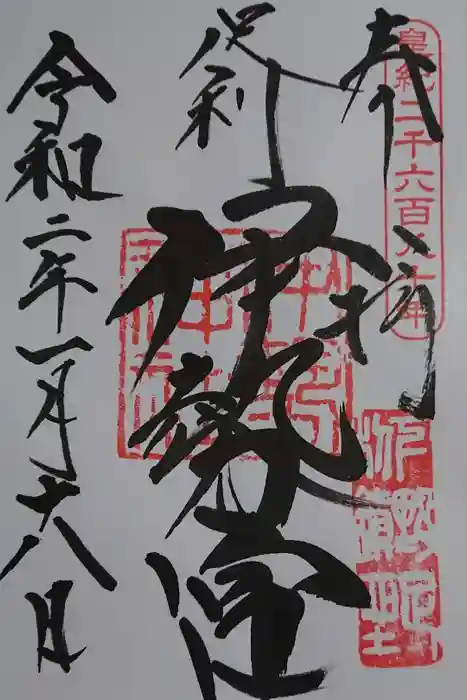 奉拝
皇紀二千六百八十年
足利
伊勢宮
伊勢
神社
令和二年一月十八日